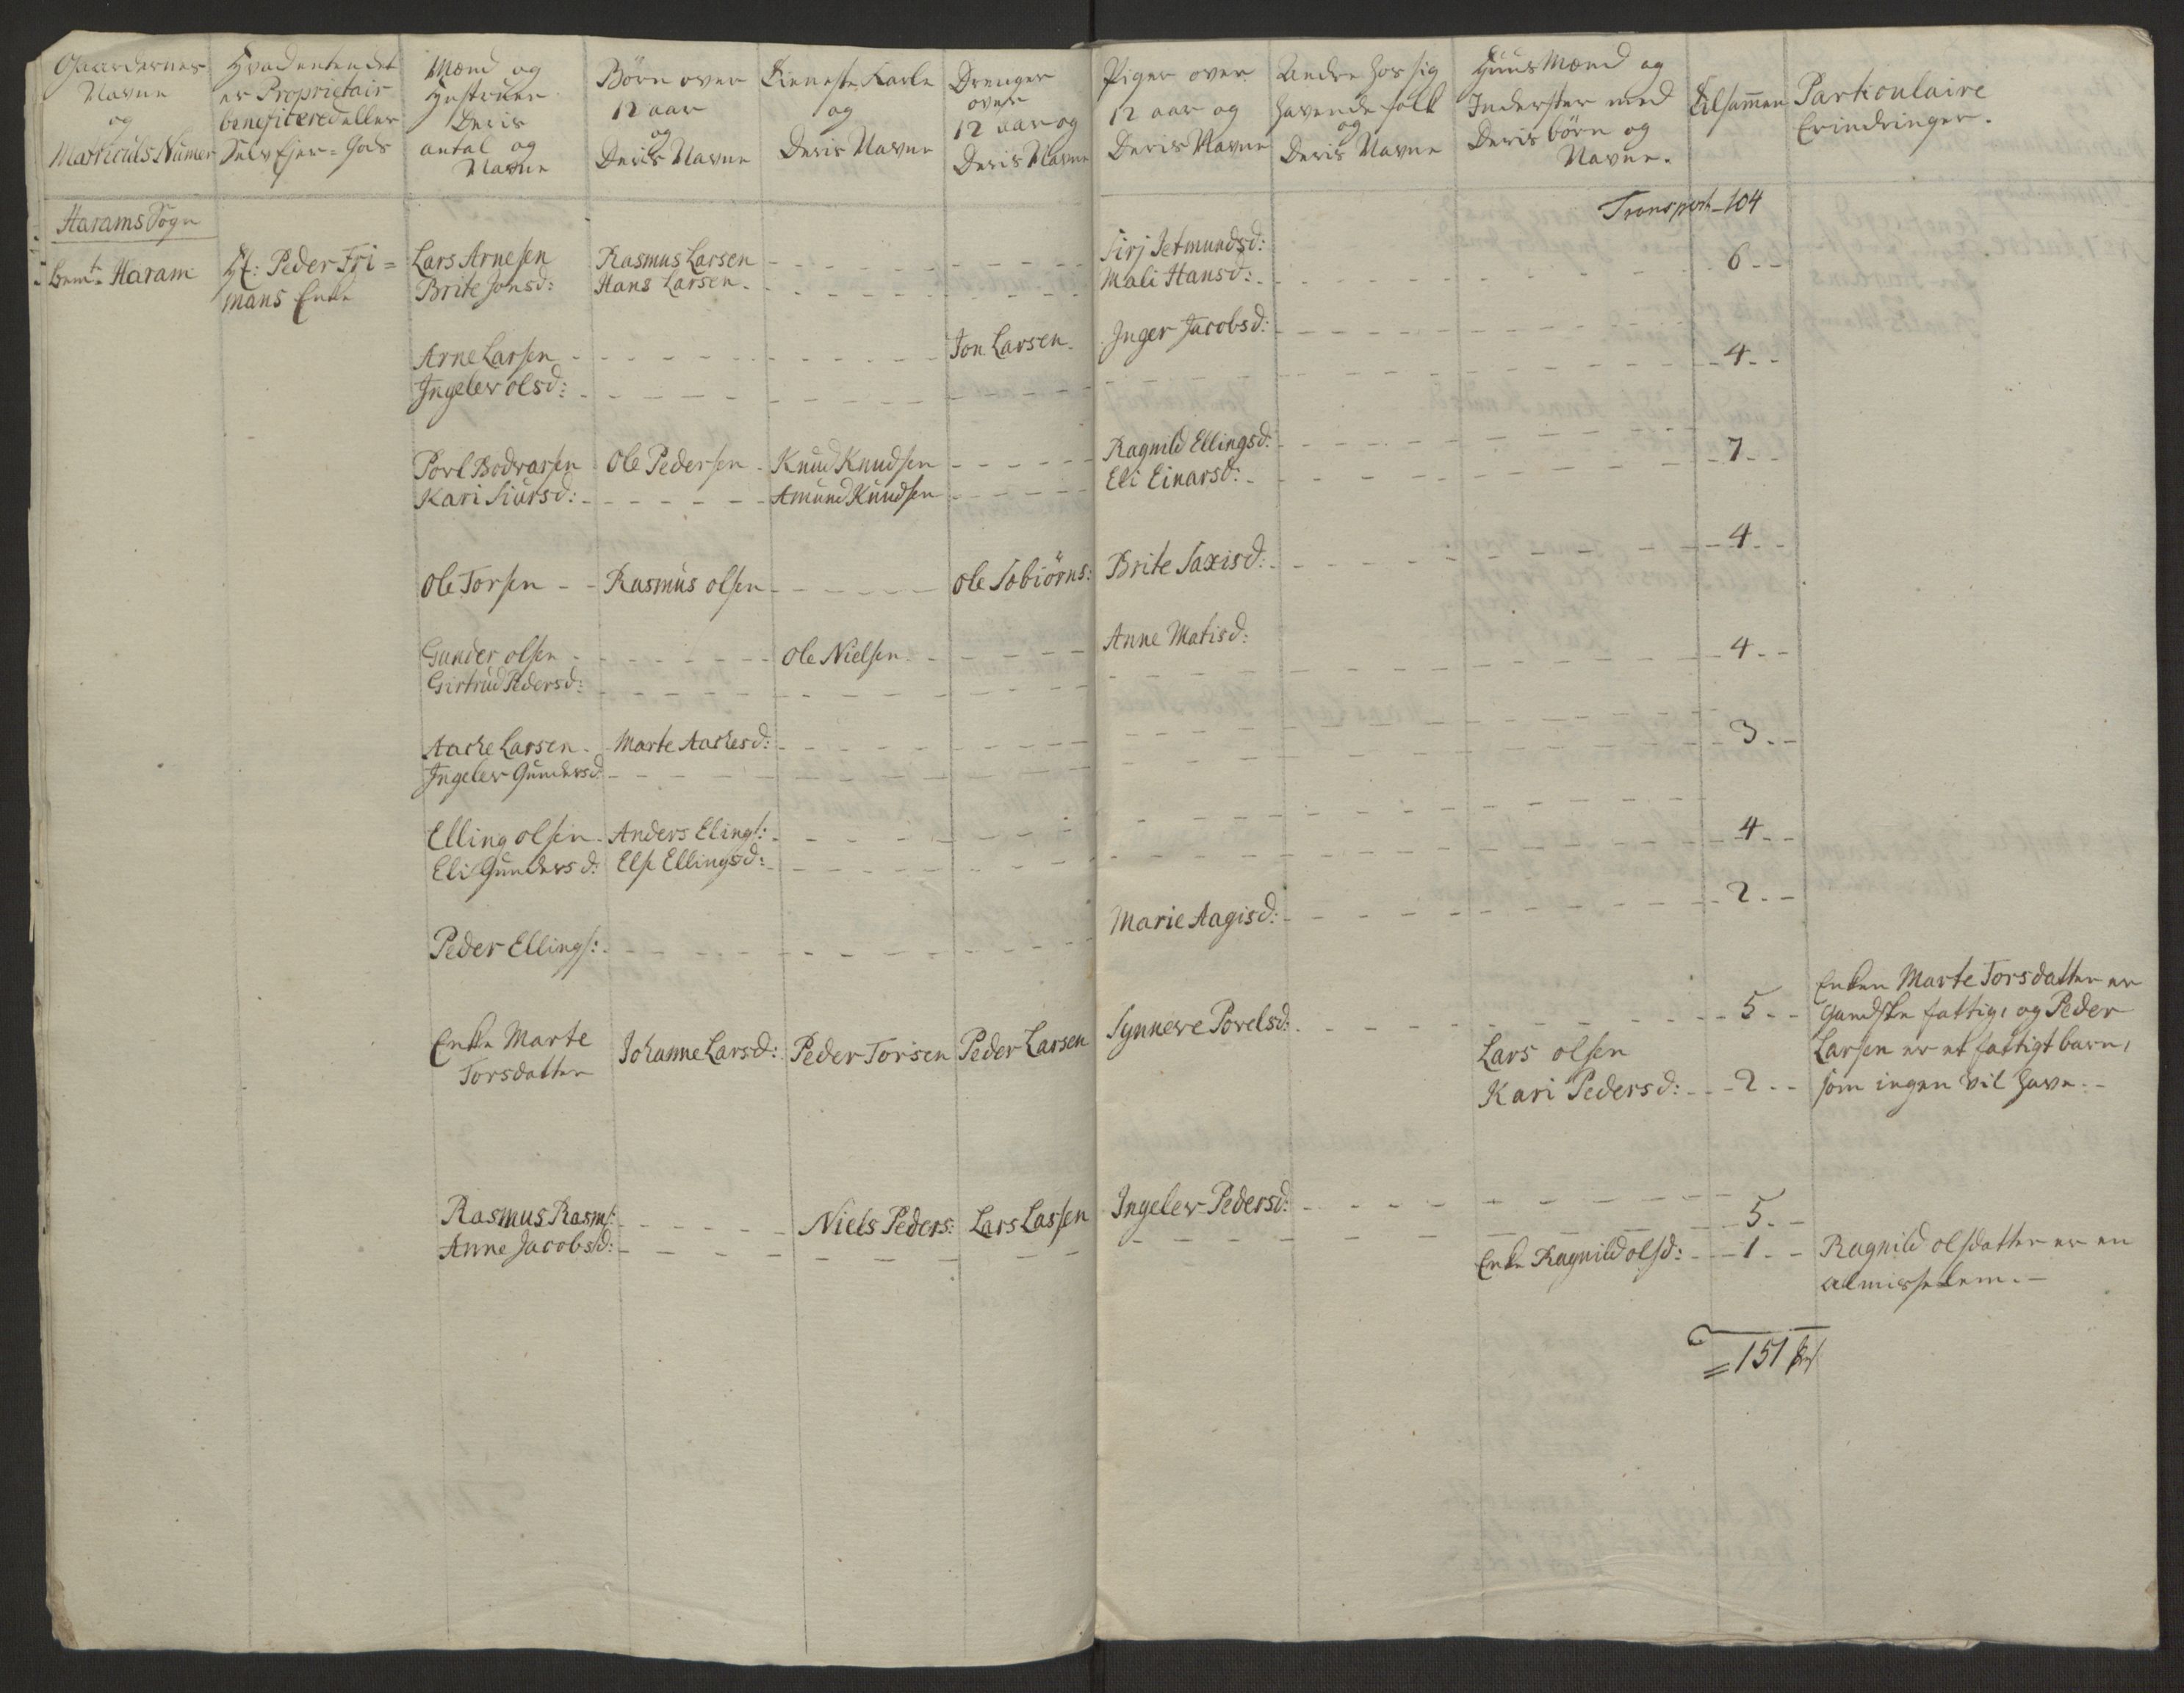 Gaardernes
Navne
og
Matriculs Numer
Hvad enten det
er Proprietair
beneficered eller
Selv Ejer-Gods
Mænd og
Hustruer
Deris
antal og
Navne
Børn over
12 aar
og
Deris Navne
Tieneste Karle
og
Deris Navne
Drenger
over
12 aar og
Deris Navne
Piger over
12 aar og
Deris Navne
Andre hos sig
havende folk
og
Deris Navne
Huus Mænd og
Inderster med
Deris børn og
Navne.
Tilsammen
Particulaire
Erindringer.
Transport - 104
Harams Sogn
Haram
Hr: Peder Fri=
mans Enke
Lars Arnesen
Rasmus Larsen
Sirj Jetmundsd:
6 - -
Brite Jonsd:
Hans Larsen -
Mali Hansd:
Arne Larsen
Jon Larsen.
Inger Jacobsd:
4 - -
Ingelev olsd:
Povl Bodvarsen
Ole Pedersen
Knud Knudsen
Ragnild Ellingsd:
7 - -
Kari Siursd:
Amund Knudsen
Eli Einarsd:
Ole Torsen - -
Rasmus olsen
Ole Sobiörns:
Brite Saxisd:
4 - -
Gunder olsen
Ole Nielsen
Anne Matisd:
4 - -
Girtrud Pedersd:
Aache Larsen
Marte Aachesd:
3 - -
Ingelev Gundersd:
Elling olsen
Anders Elings:
4 - -
Eli Gundersd:
Else Ellingsd:
Peder Ellings:
Marie Aagisd:
2 - -
Enke Marte
Torsdatter
Johanne Larsd:
Peder Torsen
Peder Larsen
Synneve Povelsd:
5 - -
Enken Marte Torsdatter er
gandske fattig, og Peder
Larsen er et fattigt barn,
som ingen vil have. -
Lars olsen
Kari Pedersd: - - 2 - -
Rasmus Rasms:
Niels Peders:
Lars Larsen
Ingelev Pedersd:
5 - -
Anne Jacobsd:
Enke Ragnild olsd: - - 1 - -
Ragnild olsdatter er en
almisselem. -
= 151